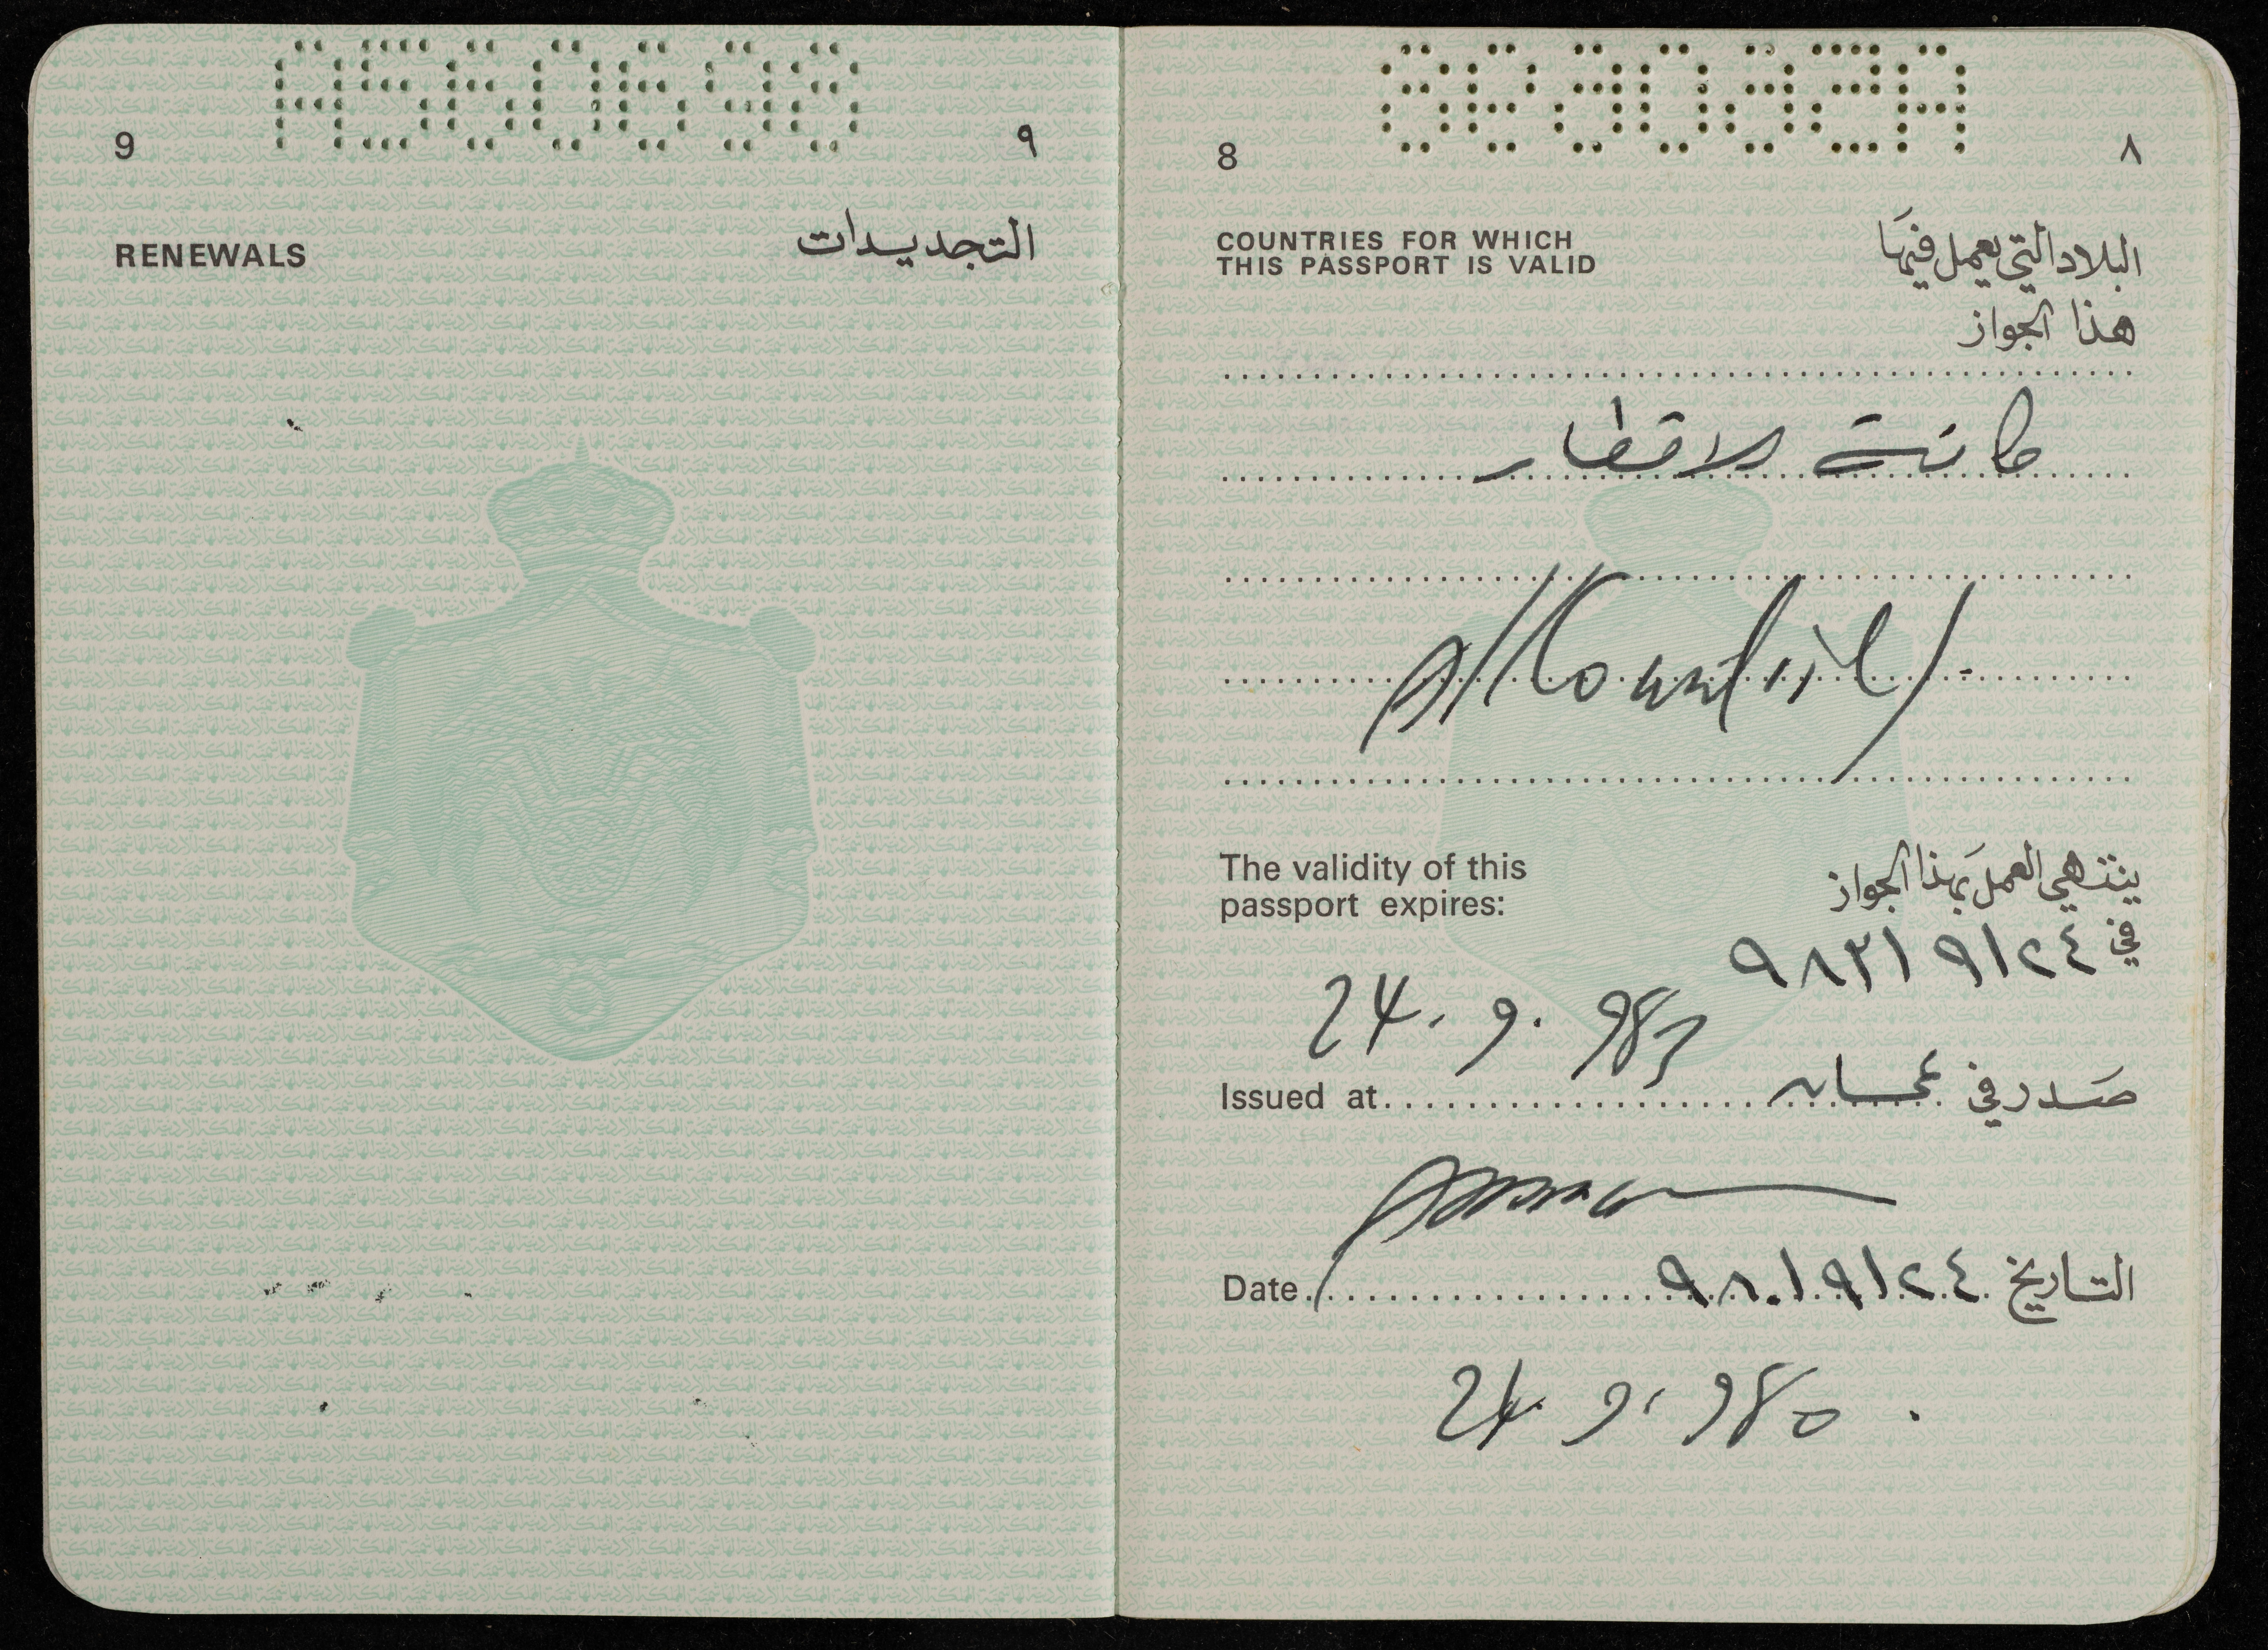 A560698
8
٨
COUNTRIES FOR WHICH
THIS PASSPORT IS VALID
البلاد التي يعمل فيها
هذا الجواز
كافة الاقطار
All Countries
The validity of this
passport expires:
ينتهي العمل بهذا الجواز
في ٢٤/٩/٩٨٣
24. 9. 983
Issued at
صدر في عمان
Amman
Date
التاريخ ٢٤/٩/٩٨٠
24. 9. 980
A560698
9
٩
RENEWALS
التجديدات